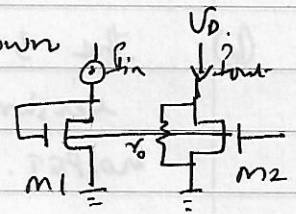 own Iin
VD
Iout
ro
M1
M2